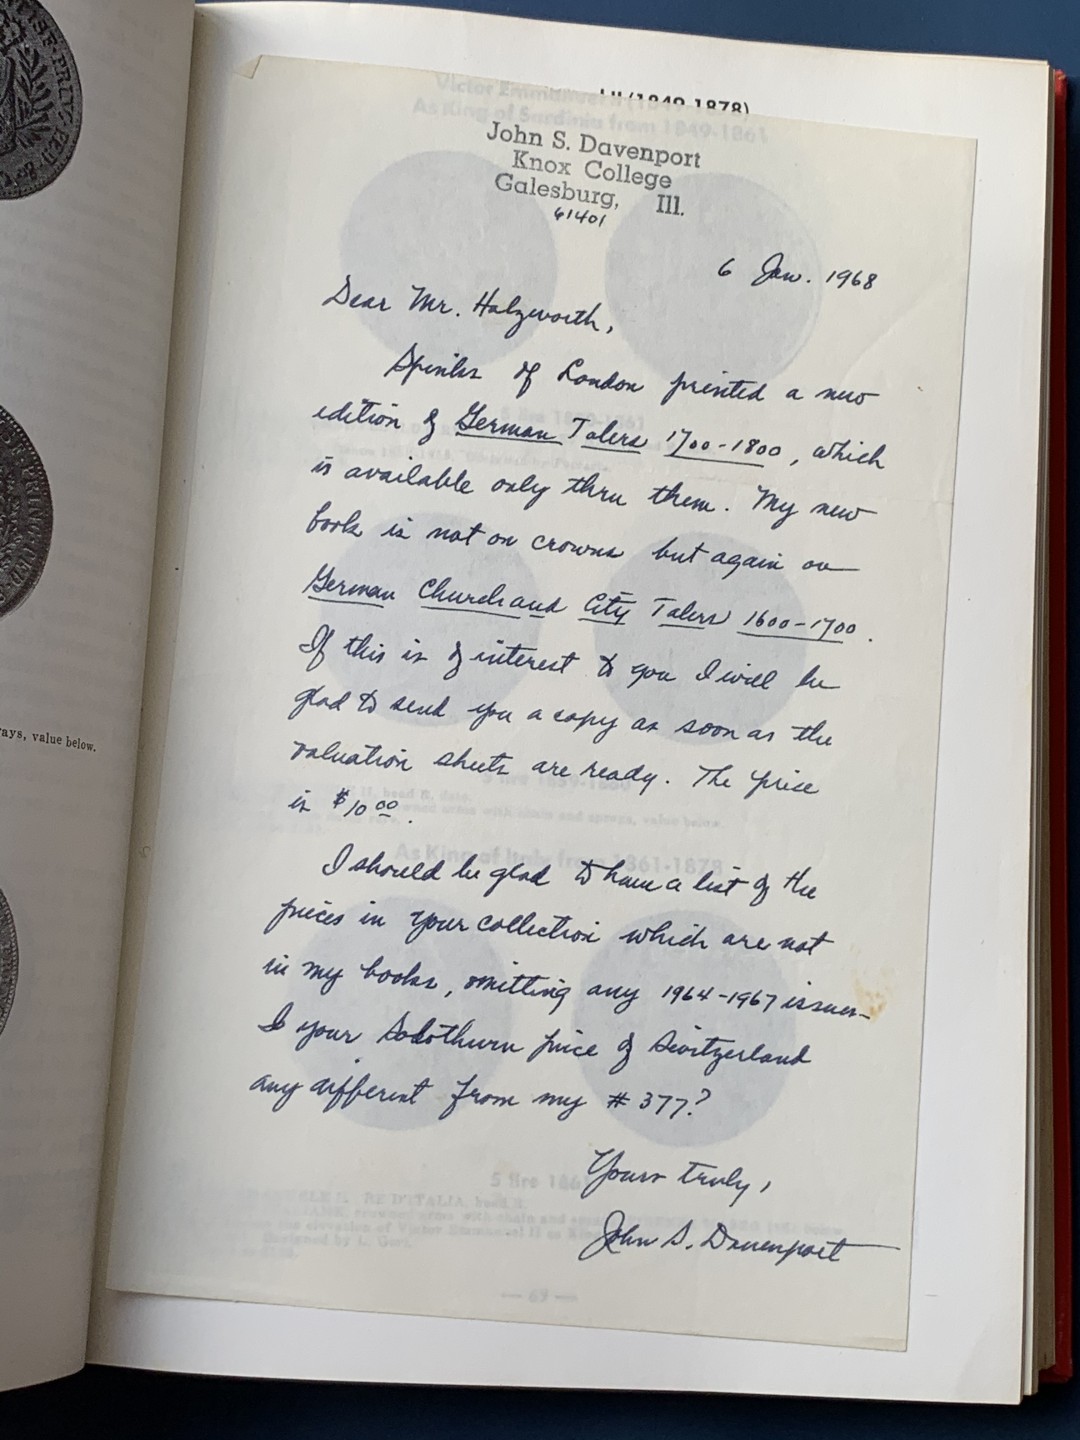 ays, value below.
II (1849-1878)
Victor Emmanuel II (1849-1878)
As King of Sardinia from 1849-1861
John S. Davenport
Knox College
Galesburg, Ill.
61401
6 Jan. 1968
Dear Mr. Holzworth,
Spinks of London printed a new
edition of German Talers 1700-1800, which
is available only thru them. My new
book is not on crowns but again on
German Church and City Talers 1600-1700.
If this is of interest to you I will be
glad to send you a copy as soon as the
valuation sheets are ready. The price
is $10 00.
As King of Italy from 1861-1878
I should be glad to have a list of the
pieces in your collection which are not
in my books, omitting any 1964-1967 issues—
Is your Solothurn piece of Switzerland
any different from my # 377?
Yours truly,
John S. Davenport
— 69 —